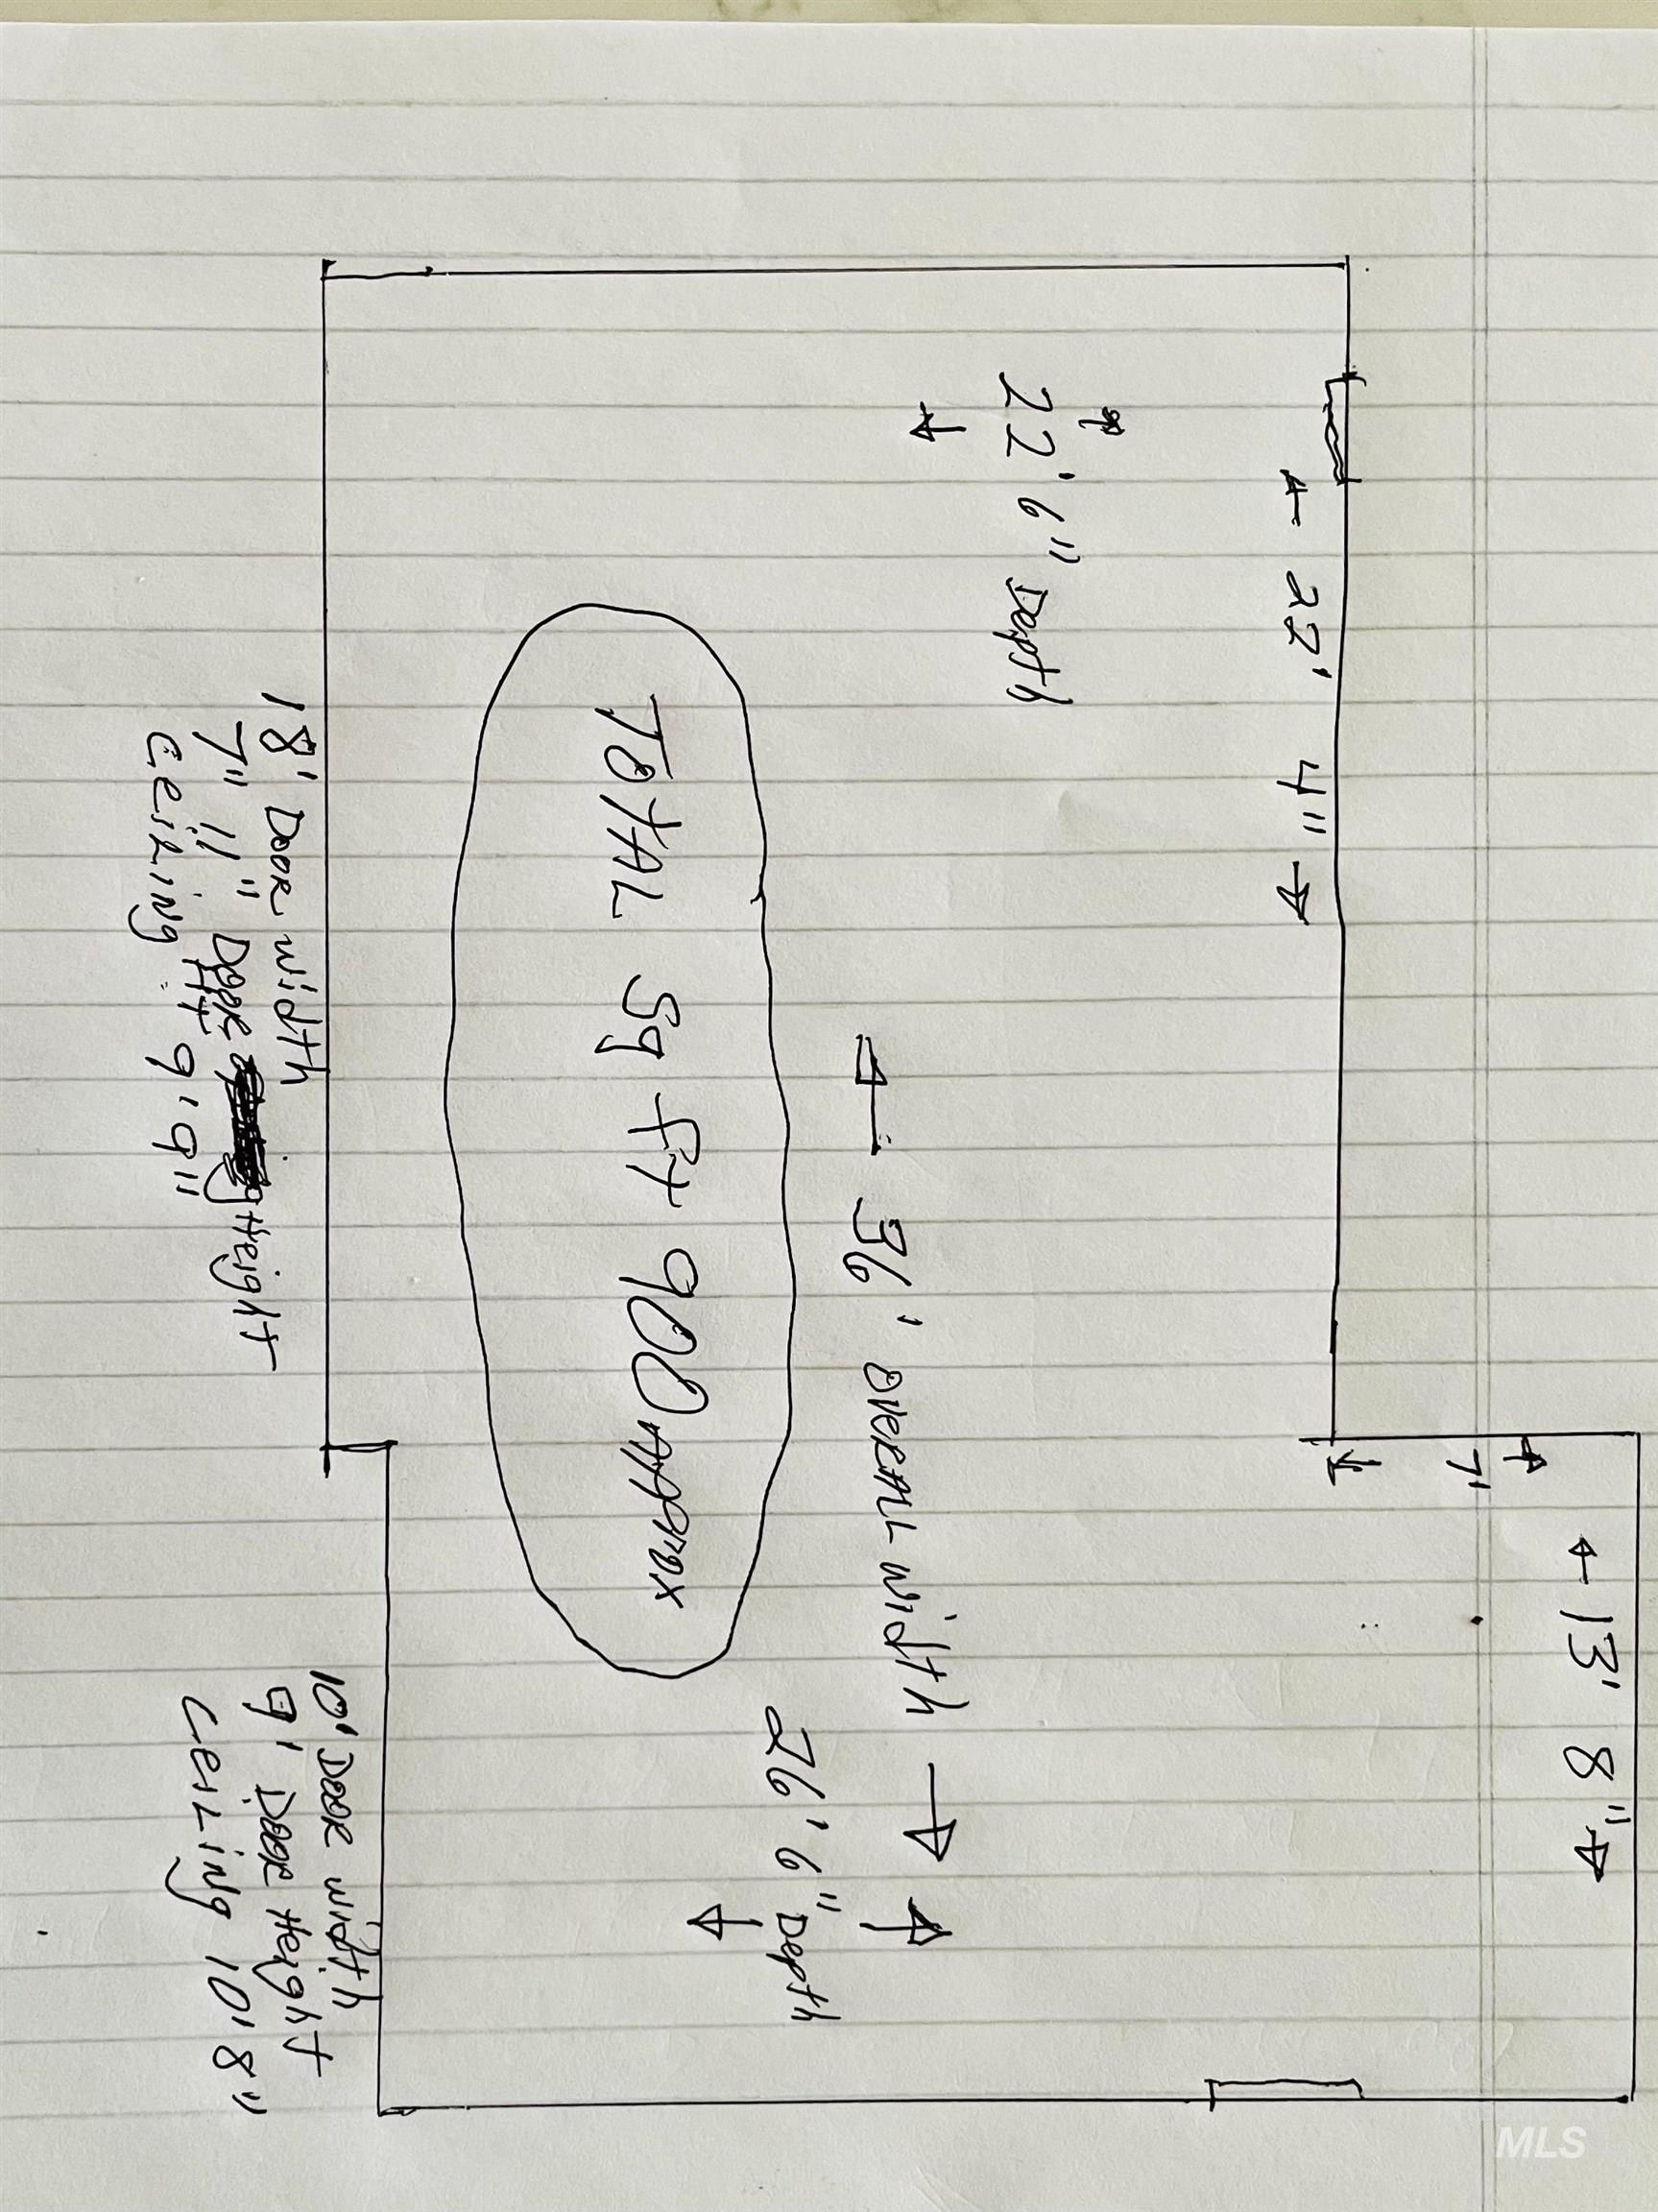 ← 13' 8" →
7'
← 22' 4" →
22' 6" Depth
← 36' OVERALL width →
26' 6" Depth
TOTAL Sq Ft 900 Approx
18' Door width
7" 11" Door Height
Ceiling Ht 9' 9"
10' Door width
9' Door Height
Ceiling 10' 8"
MLS